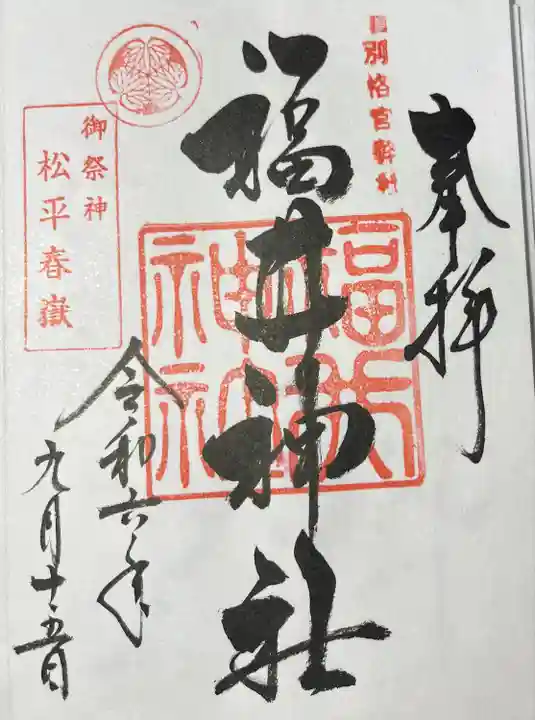 奉拝
別格官幣社
福井神社
福井神社
御祭神
松平春嶽
令和六年
九月十五日